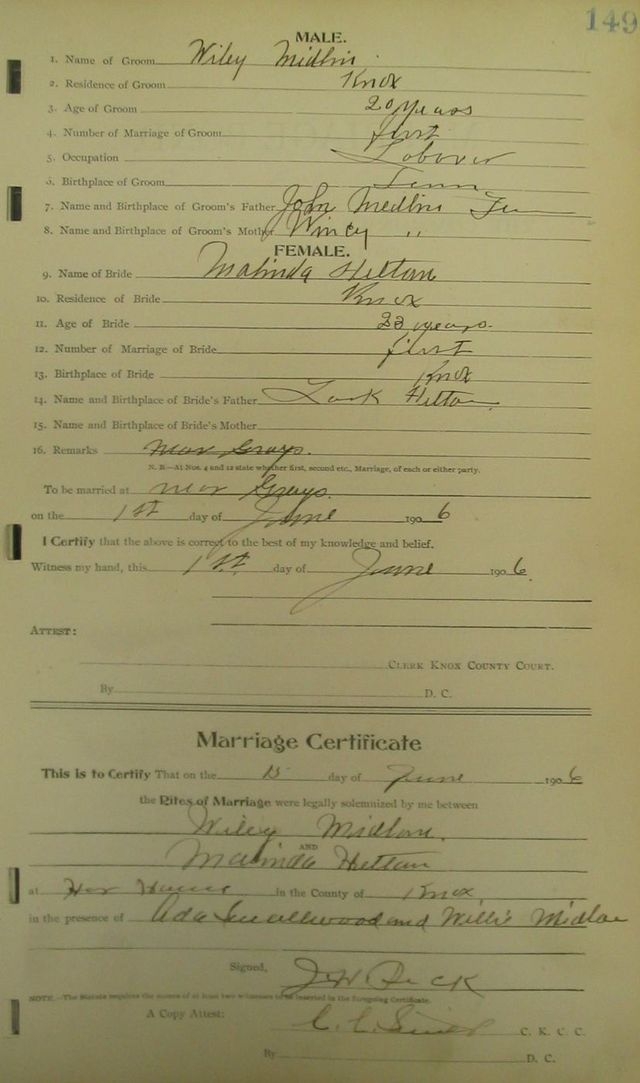 149
MALE.
1. Name of Groom Wiley Midlin
2. Residence of Groom Knox
3. Age of Groom 20 years
4. Number of Marriage of Groom first
5. Occupation Laborer
6. Birthplace of Groom Tenn
7. Name and Birthplace of Groom's Father John Medlin Ten
8. Name and Birthplace of Groom's Mother Wincy "
FEMALE.
9. Name of Bride Malinda Helton
10. Residence of Bride Knox
11. Age of Bride 23 years
12. Number of Marriage of Bride first
13. Birthplace of Bride Knox
14. Name and Birthplace of Bride's Father Helton
15. Name and Birthplace of Bride's Mother
16. Remarks near Grays.
N. B.—At Nos. 4 and 12 state whether first, second etc., Marriage, of each or either party.
To be married at near Grays.
on the 1st day of June 1906
I Certify that the above is correct to the best of my knowledge and belief.
Witness my hand, this 1st day of June 1906.
ATTEST:
CLERK KNOX COUNTY COURT.
By D. C.
Marriage Certificate
This is to Certify That on the day of June 1906
the Rites of Marriage were legally solemnized by me between
Wiley Midlon.
AND
Malinda Helton
at Her House in the County of Knox
in the presence of Ada Smallwood and Willie Midlon
Signed, J. W. Peck
NOTE.—The Statute requires the names of at least two witnesses to be inserted in the foregoing Certificate.
A Copy Attest: C. C. C. K. C. C.
By D. C.